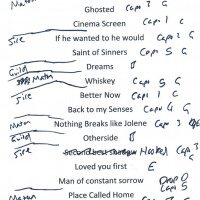 Maton Ghosted Capo 3 G
Cinema Screen Capo 1 C
Sire If he wanted to he would Capo 2 G
Saint of Sinners Capo 5 G
Guild Dreams
Maton Whiskey Capo 5 G
Sire Better Now Capo 1 C
Back to my Senses Capo 4 G
Maton Nothing Breaks like Jolene Capo 3
Guild Otherside
Sire Second best Hooked Capo 3 G
Loved you first E
Man of constant sorrow Drop D Capo 5
Maton Place Called Home